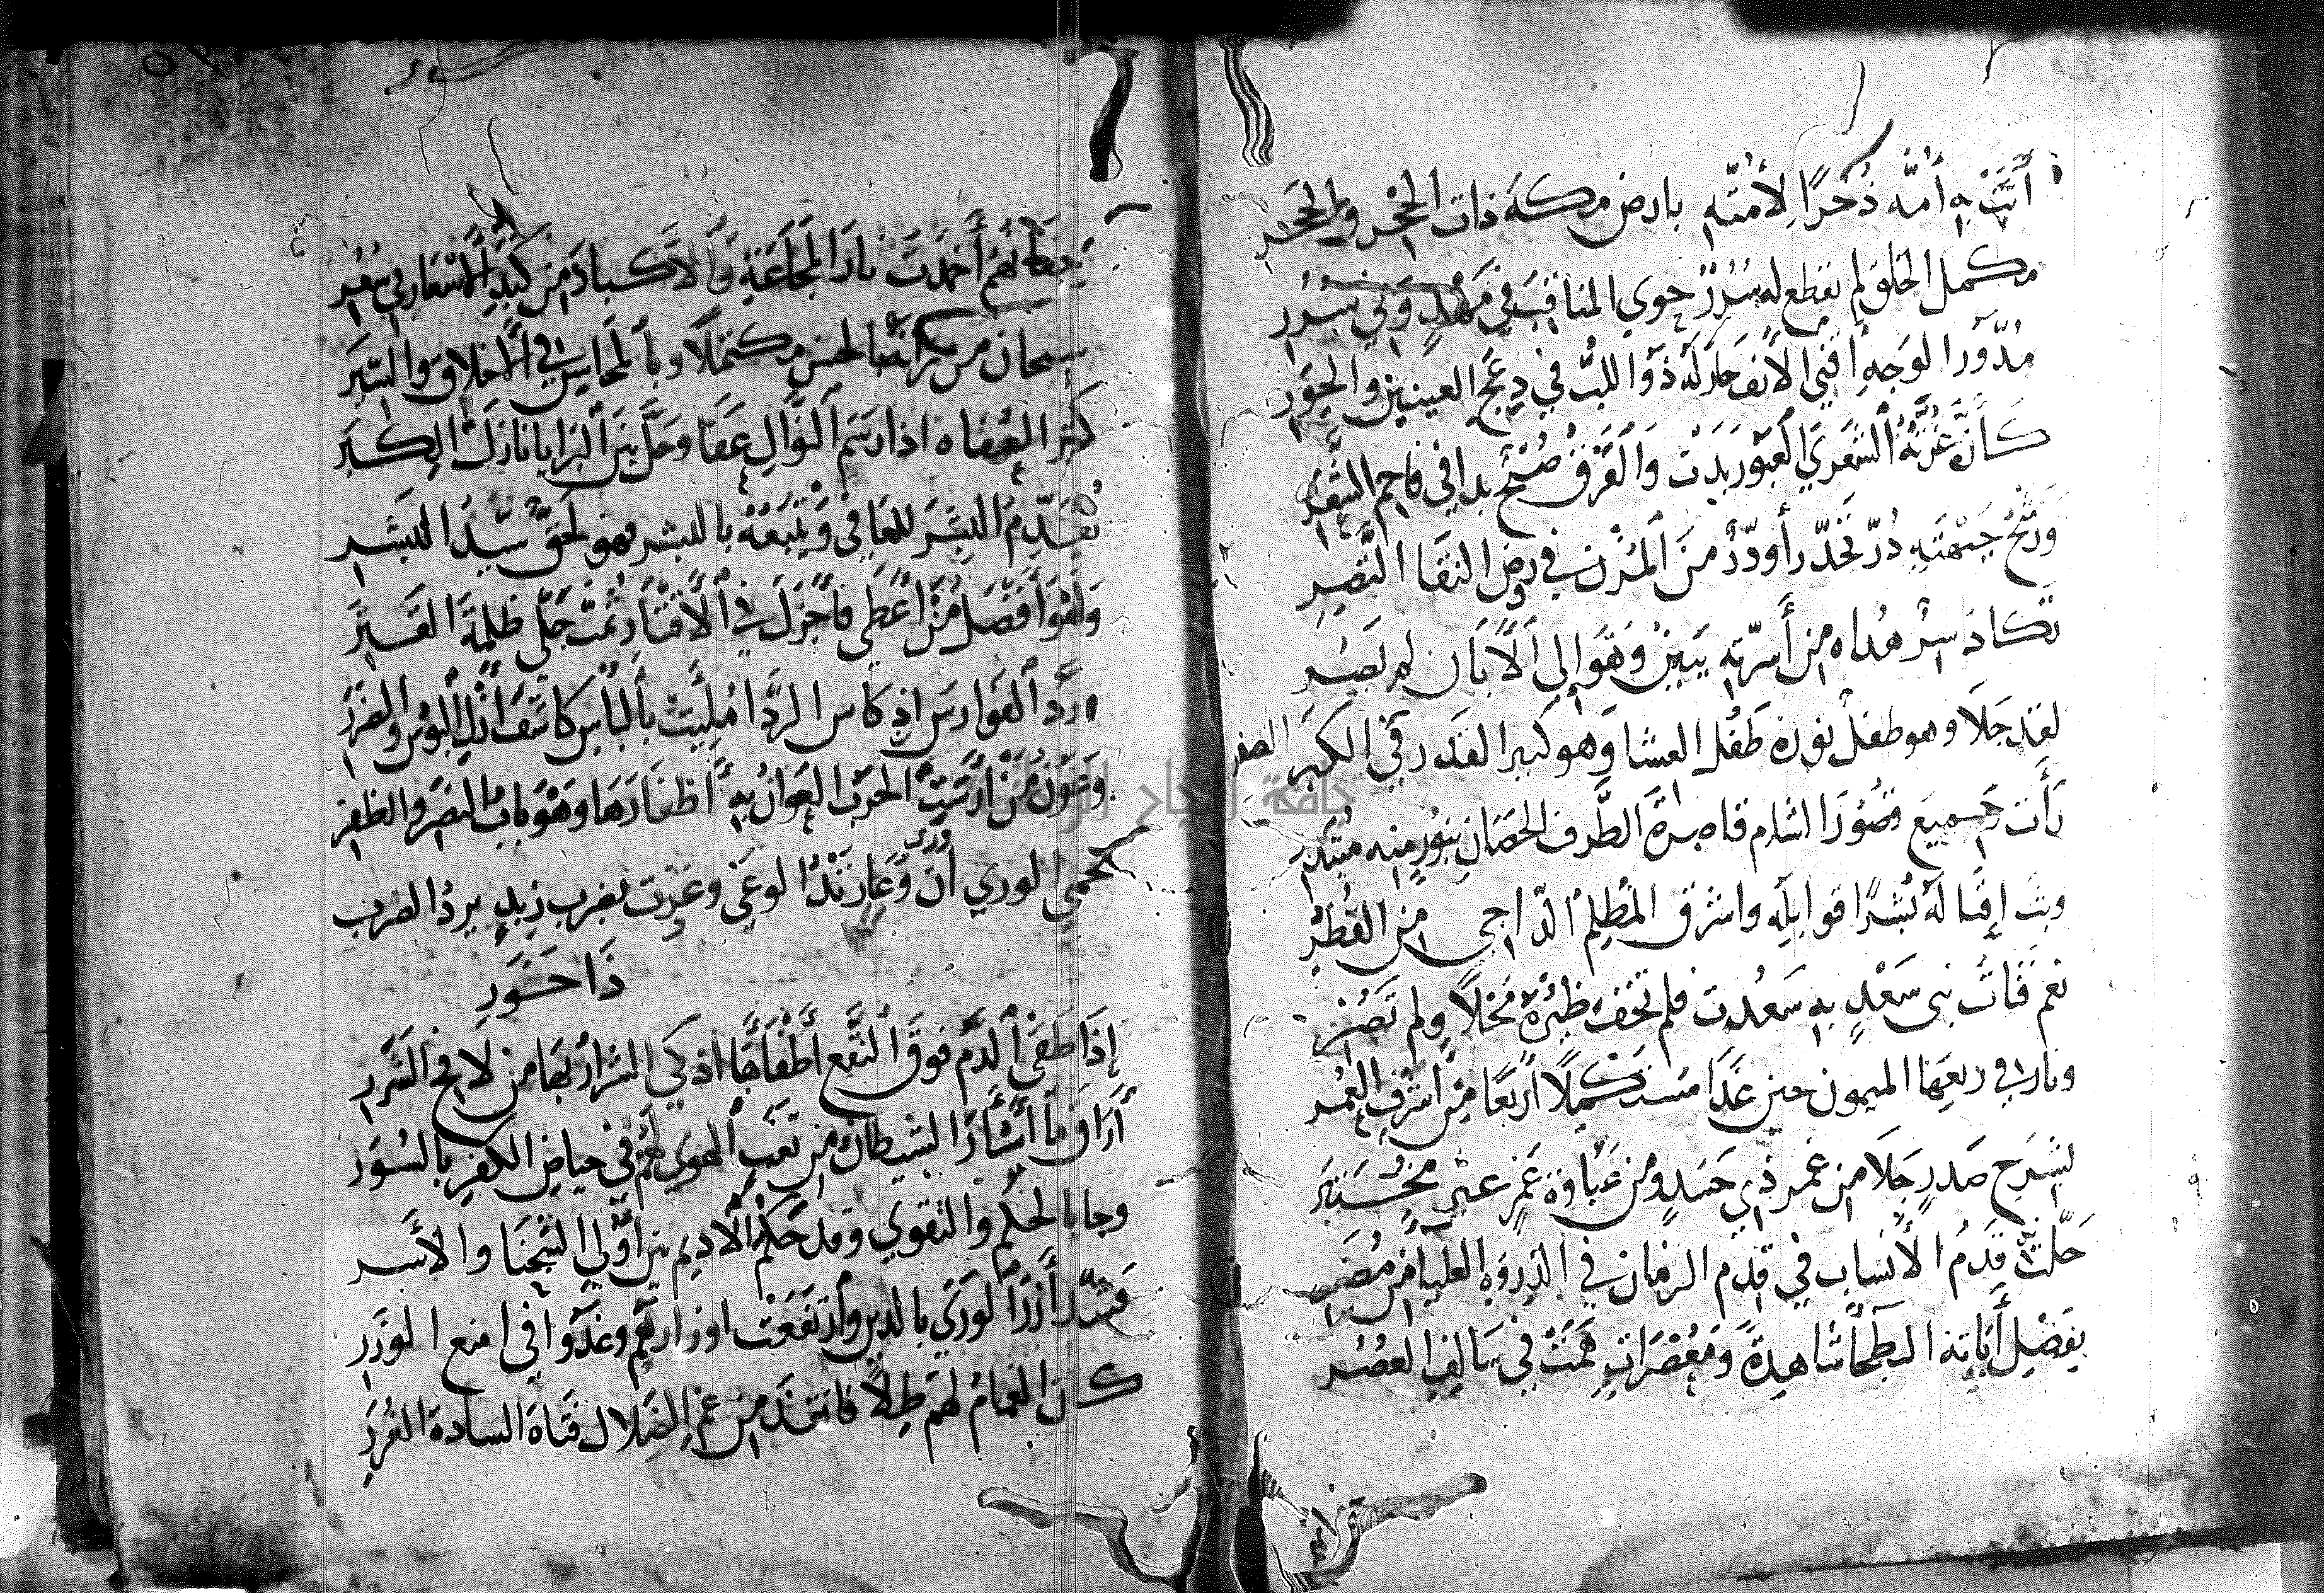 أتت به أمه ذخرا لأمته بارض مكة ذات الحجر والحجر
مكمل الخلق لم تقطع له سرر حوي المناقب في مهد وفي سرر
مدور الوجه أقني الأنف حار له ذو اللب في دعج العينين والحور
كأن غرته الشعري العبور بدت والفرق صبح بدا في فاحم الشعر
ورشح جبهته در تحدر أو در من المزن في روض النقا النضر
تكاد سر هداه من أسرته يبين وهو إلي الأبان لم يصر
لقد جلا وهو طفل نوره طفل العشا وهو كبير القدر في الصغر
رأت جميع قصور الشام قاصرة الطرف الحصان بنور منه
وبث إقباله بشرا قوابله واشرق المظلم الداجي من القطر
نعم فتاة بني سعد به سعدت فلم تخف ظئره محلا ولم تضر
ونار في ربعها الميمون حين غدا مستكملا أربعا من أشرف العمر
لشرح صدر جلا من غمر ذي حسد ومن غباوة غمر غير مختبر
حلت قدم الأنساب في قدم الزمان في الذروة العليا من مضر
بفضل أباته البطحا شاهدة ومعصرات همت في سالف العصر
أخمدت نار المجاعة والأكباد من كبد الأسعار في سعر
سبحان من بالحسن مكتملا وبالمحاسن في الأخلاق والسير
كنز العفاه اذا رسم النوال عفا وحل بين البرايا نازل الكبر
يقدم البشر للعافي ويتبعه بالبشر فهو لحق سيد البشر
وهو أفضل من أعطي فأجزل في الأقتار ثمت جلي ظلمة القتر
رد الفوارس اذ كاس الردا مليت بالبأس كاشف ازل البؤس والضرر
وعون من أرسبت الحرب العوان به أظفارها وهو باب النصر والظفر
يحمي الوري ان وري وعار زند الوغي وغدت بضرب زيد يرد الضرب
ذا خور
إذا طفي الدم فوق النقع أطفأها اذكي الشرار بها من لافح الشرر
أراق ما أشأر الشيطان من تعب الهوي لهم في حياض الكفر بالسور
وجا بالحكم والتقوي وقد حكم الأديم بين أولي الشحنا والأشر
فشد أزر الوري بالدين وارتفعت اوزارهم وغدوا في امنع الوزر
كان الغمام لهم ظلا فانقذ من غم الضلال فتاة السادة الغرر